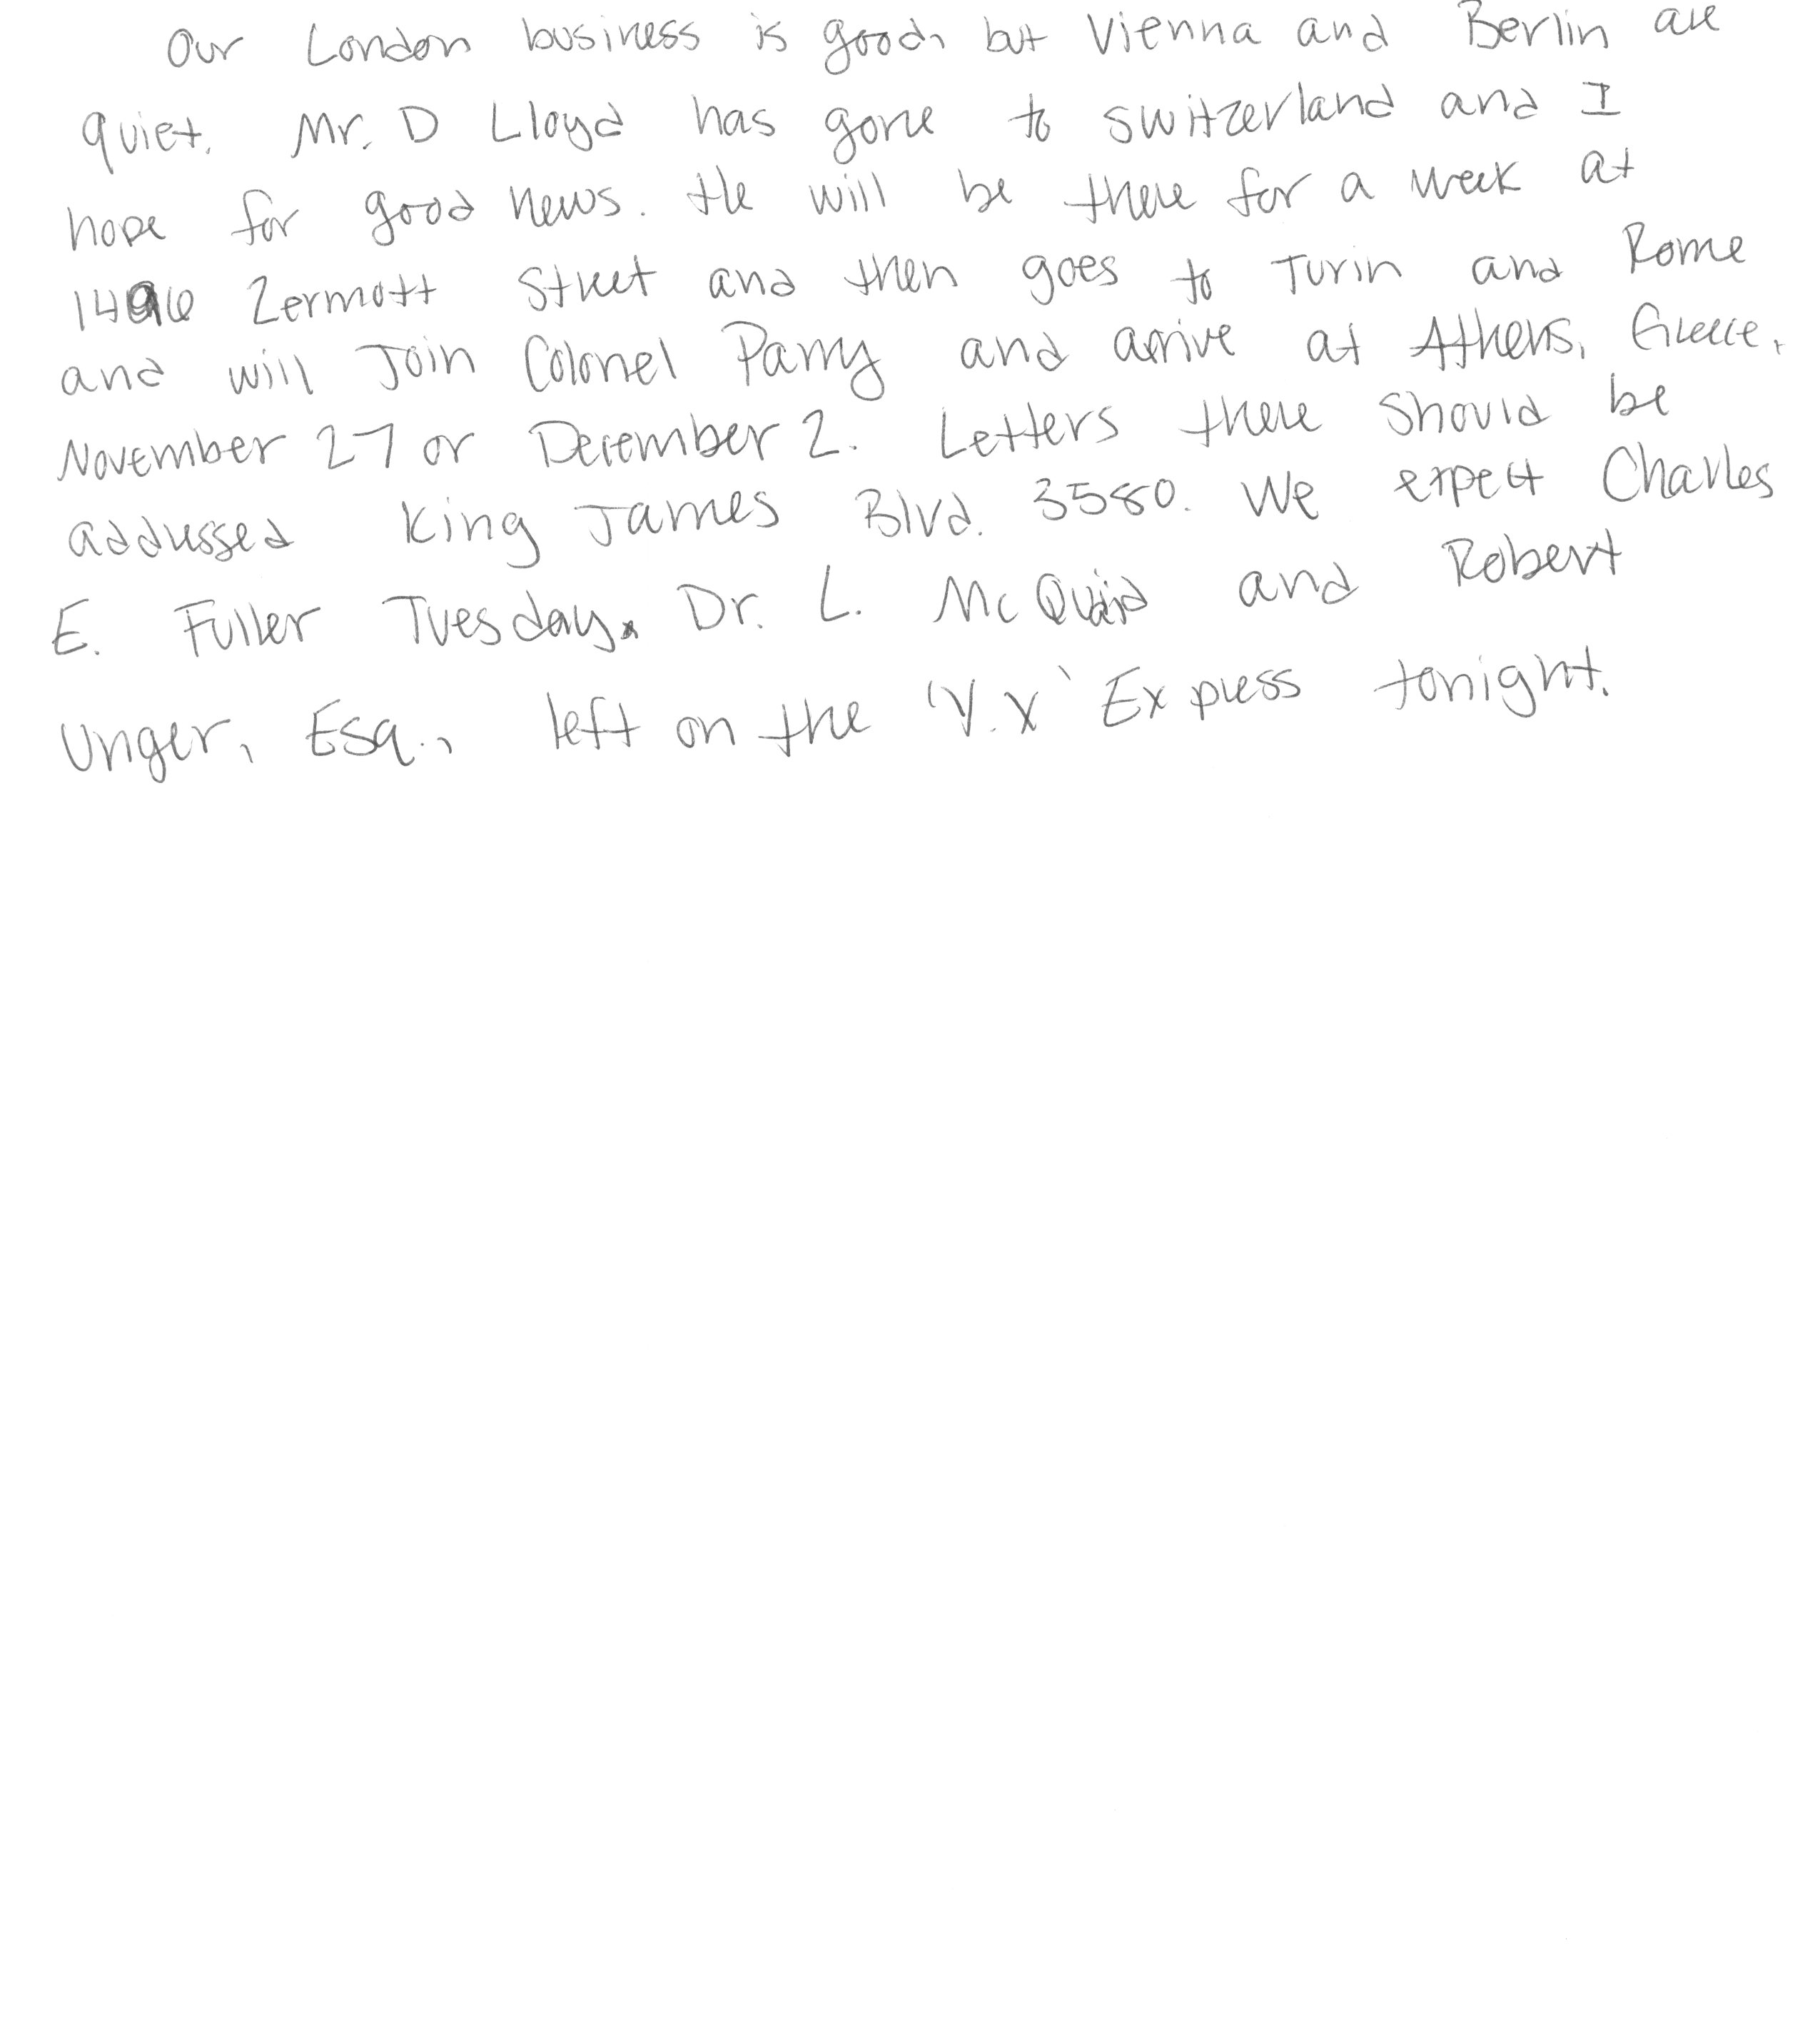 Our London business is good, but Vienna and Berlin are
quiet. Mr. D Lloyd has gone to Switzerland and I
hope for good news. He will be there for a week at
1496 Zermott Street and then goes to Turin and Rome
and will Join Colonel Parry and arrive at Athens, Greece,
November 27 or December 2. Letters there should be
addressed King James Blvd. 3580. We expect Charles
E. Fuller Tuesday. Dr. L. McQuaid and Robert
Unger, Esq., left on the 'Y.X' Express tonight.